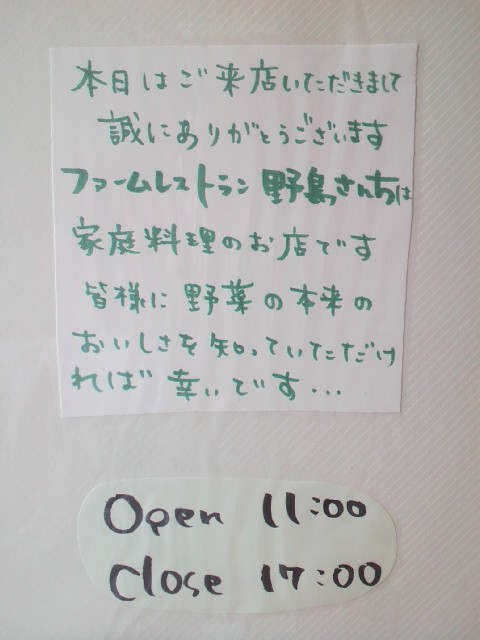 本日はご来店いただきまして
誠にありがとうございます
ファームレストラン野島さんちは
家庭料理のお店です
皆様に野菜の本来の
おいしさを知っていただけ
れば幸いです…
Open 11:00
Close 17:00